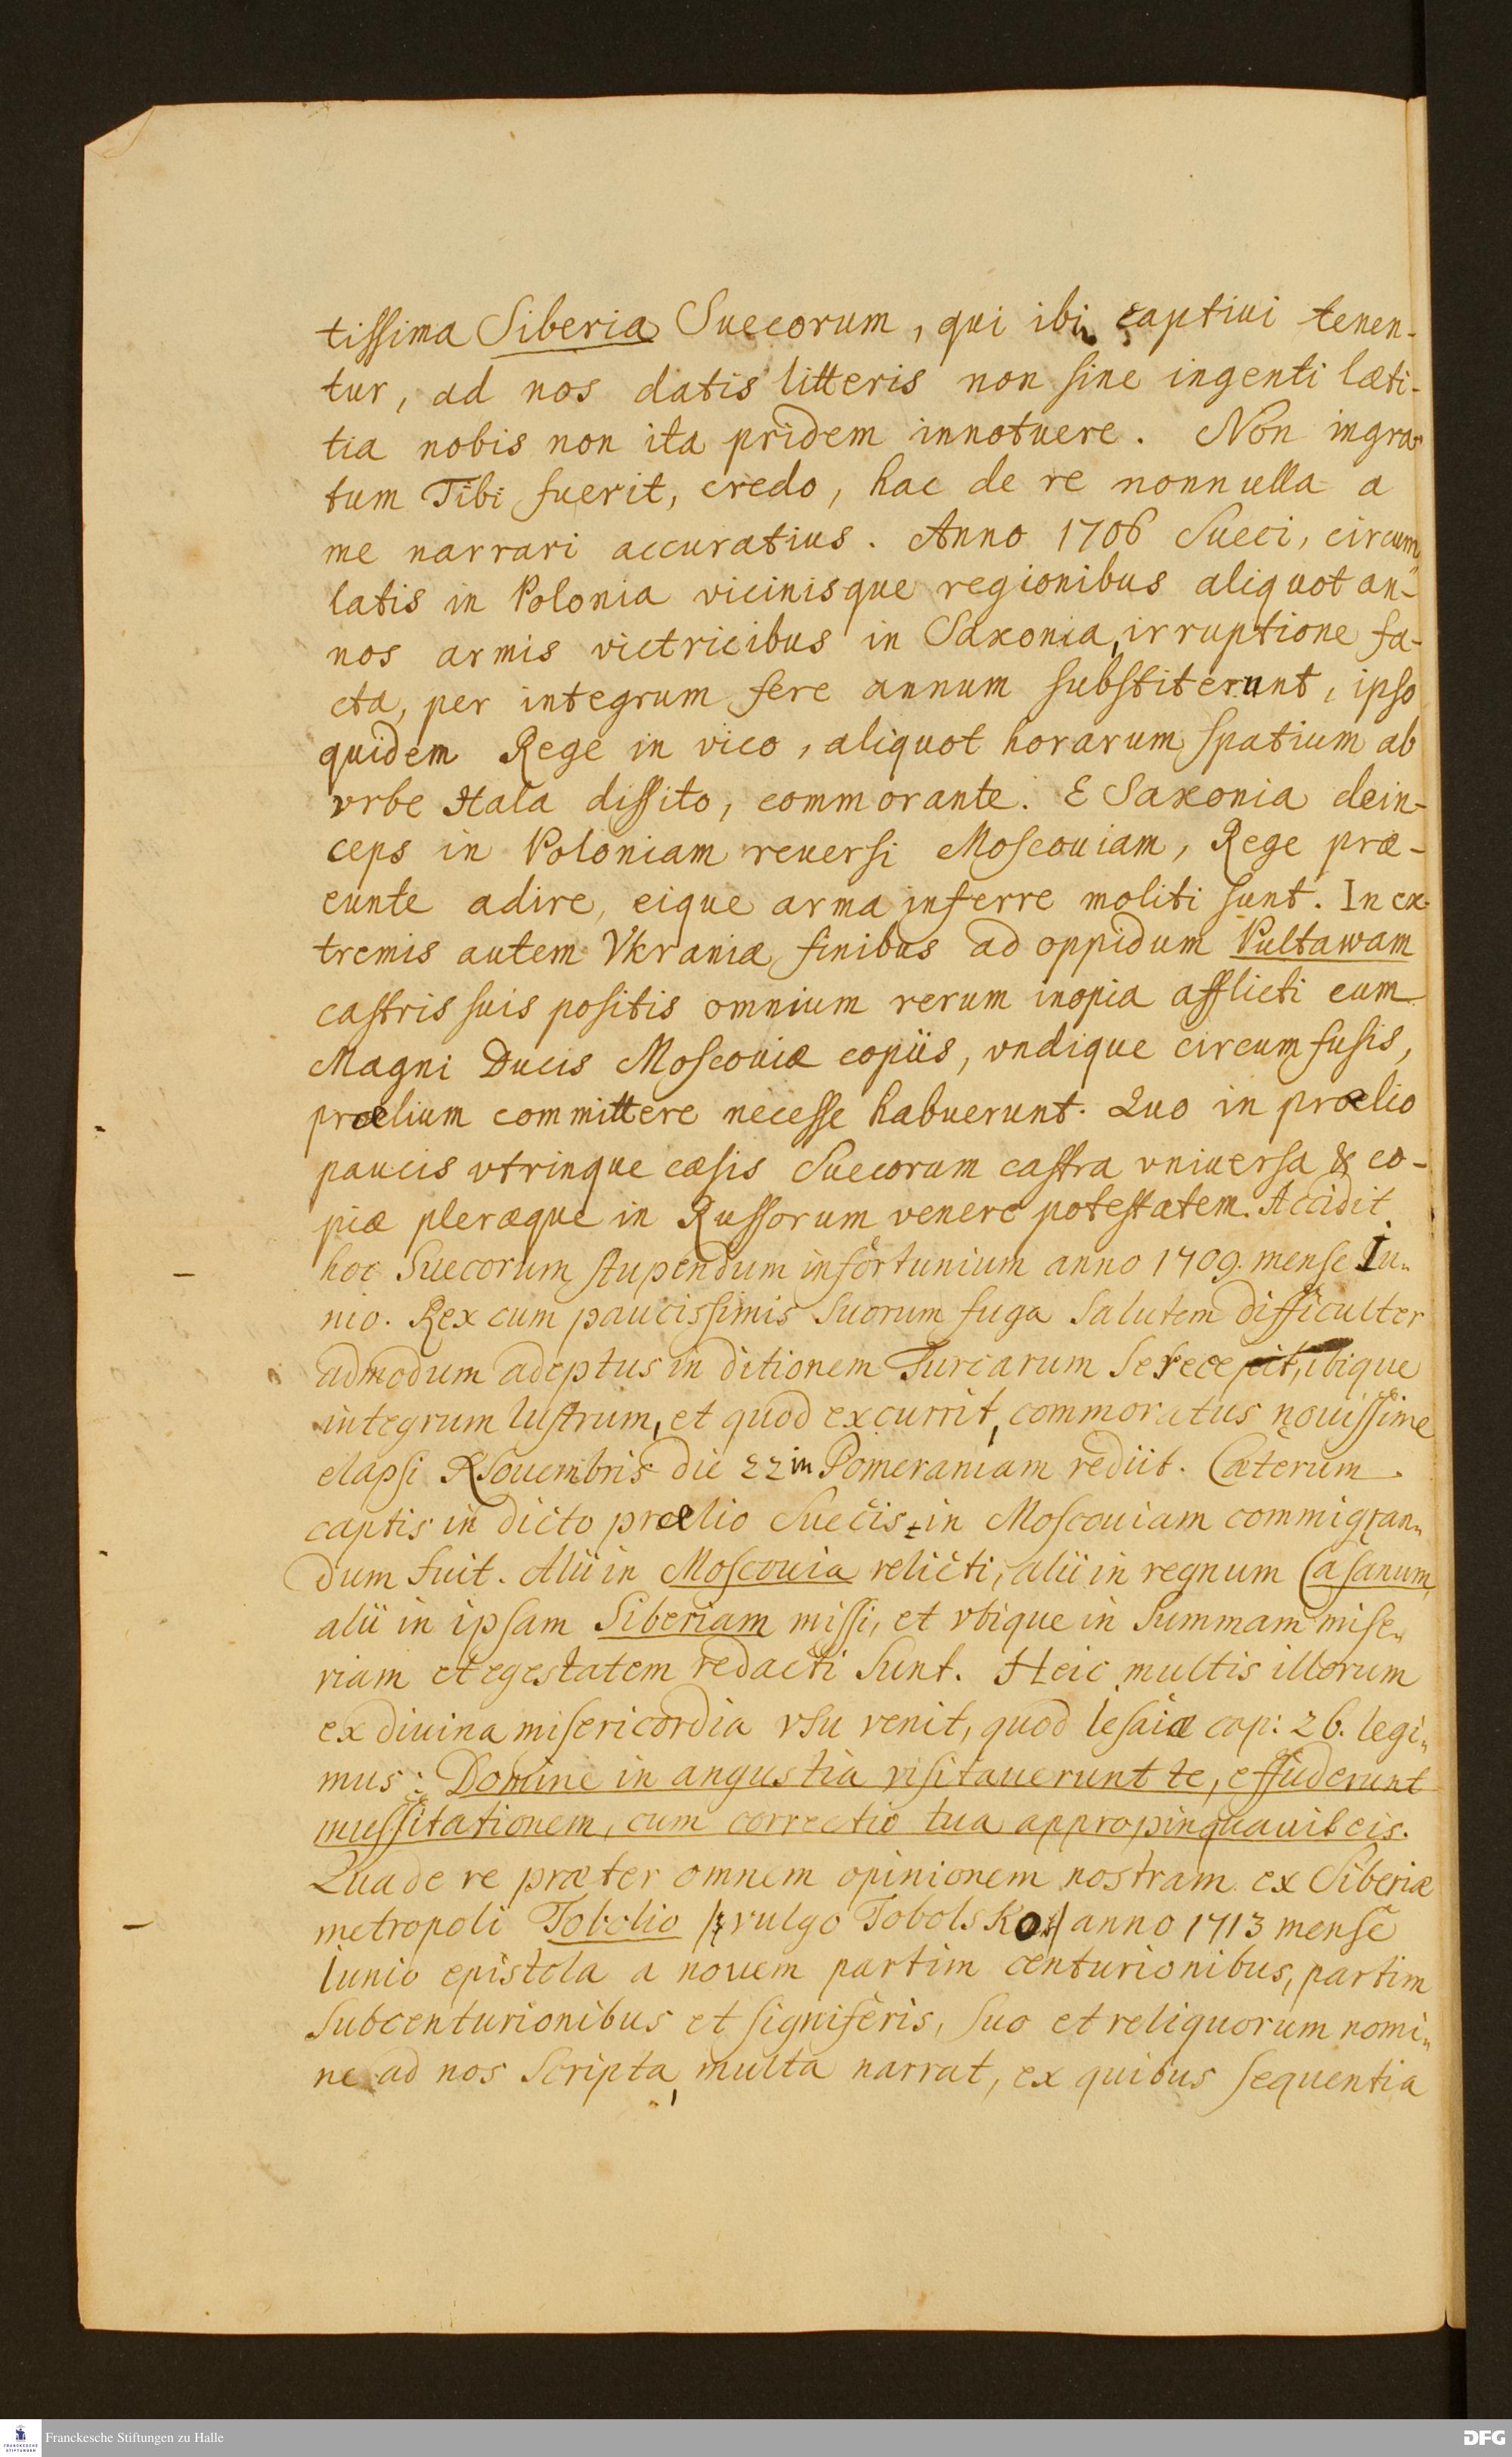 tissima Siberia Suecorum, qui ibi captiui tenen-
tur, ad nos datis litteris non sine ingenti læti-
tia nobis non ita pridem innotuere. Non ingra-
tum Tibi fuerit, credo, hac de re nonnulla a
me narrari accuratius. Anno 1706 Sueci, circum
latis in Polonia vicinisque regionibus aliquot an-
nos armis victricibus in Saxonia, irruptione fa-
cta, per integrum fere annum substiterunt, ipso
quidem Rege in vico, aliquot horarum spatium ab
vrbe Hala dissito, commorante. E Saxonia dein-
ceps in Poloniam reuersi Moscouiam, Rege præ-
eunte adire, eique arma inferre moliti sunt. In ex-
tremis autem Vkraniæ finibus ad oppidum Pultawam
castris suis positis omnium rerum inopia afflicti cum
Magni Ducis Moscouiæ copiis, vndique circumfusis,
prœlium committere necesse habuerunt. Quo in prœlio
paucis vtrinque cæsis Suecorum castra vniuersa & co-
piæ pleræque in Russorum venere potestatem. Accidit
hoc Suecorum stupendum infortunium anno 1709. mense Iu-
nio. Rex cum paucissimis suorum fuga salutem difficulter
admodum adeptus in ditionem Turcarum se recepit, ibique
integrum lustrum, et quod excurrit, commoratus nouissime
elapsi Nouembris die 22 in Pomeraniam rediit. Cæterum
captis in dicto prœlio Suecis in Moscouiam commigran-
dum fuit. Alii in Moscouia relicti, alii in regnum Casanum,
alii in ipsam Siberiam missi, et vbique in summam mise-
riam et egestatem redacti sunt. Heic multis illorum
ex diuina misericordia vsu venit, quod Iesaiæ cap: 26. legi-
mus: Domine in angustia visitauerunt te, effuderunt
mussitationem, cum correctio tua appropinquauit eis.
Qua de re præter omnem opinionem nostram ex Siberiæ
metropoli Tobolio (vulgo Tobolsko) anno 1713 mense
Iunio epistola a nouem partim centurionibus, partim
subcenturionibus et signiferis, suo et reliquorum nomi-
ne ad nos scripta, multa narrat, ex quibus sequentia
Franckesche Stiftungen zu Halle
DFG